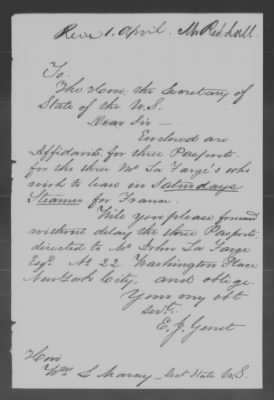 Recd 1. April. Mr Redhall
To.
The Hon: the Secretary of
State of the U.S.
Dear Sir —
Enclosed are
Affidavits for three Passports
for the three Mr La Farge's who
wish to leave in Saturdays
Steamer for France.
Will you please forward
without delay the three Passports
directed to Mr John La Farge
Esqr. No 22. Washington Place
New York City. and oblige.
Your my obt
Servt.
E. J. Genet
Hon
Wm L Marcy — Sect State U.S.